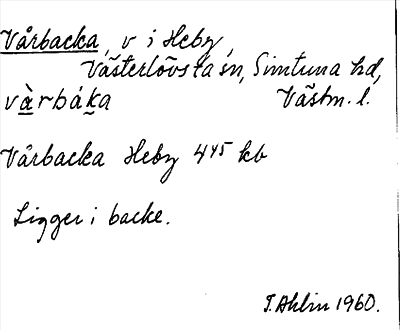 Vårbacka, v i Heby,
Västerlövsta sn, Simtuna hd,
vàrbáka Västm. l.
Vårbacka Heby 445 kb
Ligger i backe.
T. Ahlin 1960.